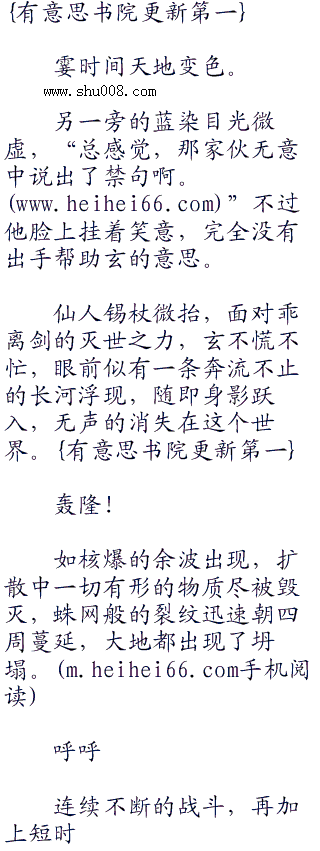 {有意思书院更新第一}
霎时间天地变色。
www.shu008.com
另一旁的蓝染目光微
虚，“总感觉，那家伙无意
中说出了禁句啊。
(www.heihei66.com)”不过
他脸上挂着笑意，完全没有
出手帮助玄的意思。
仙人锡杖微抬，面对乖
离剑的灭世之力，玄不慌不
忙，眼前似有一条奔流不止
的长河浮现，随即身影跃
入，无声的消失在这个世
界。{有意思书院更新第一}
轰隆！
如核爆的余波出现，扩
散中一切有形的物质尽被毁
灭，蛛网般的裂纹迅速朝四
周蔓延，大地都出现了坍
塌。(m.heihei66.com手机阅
读)
呼呼
连续不断的战斗，再加
上短时